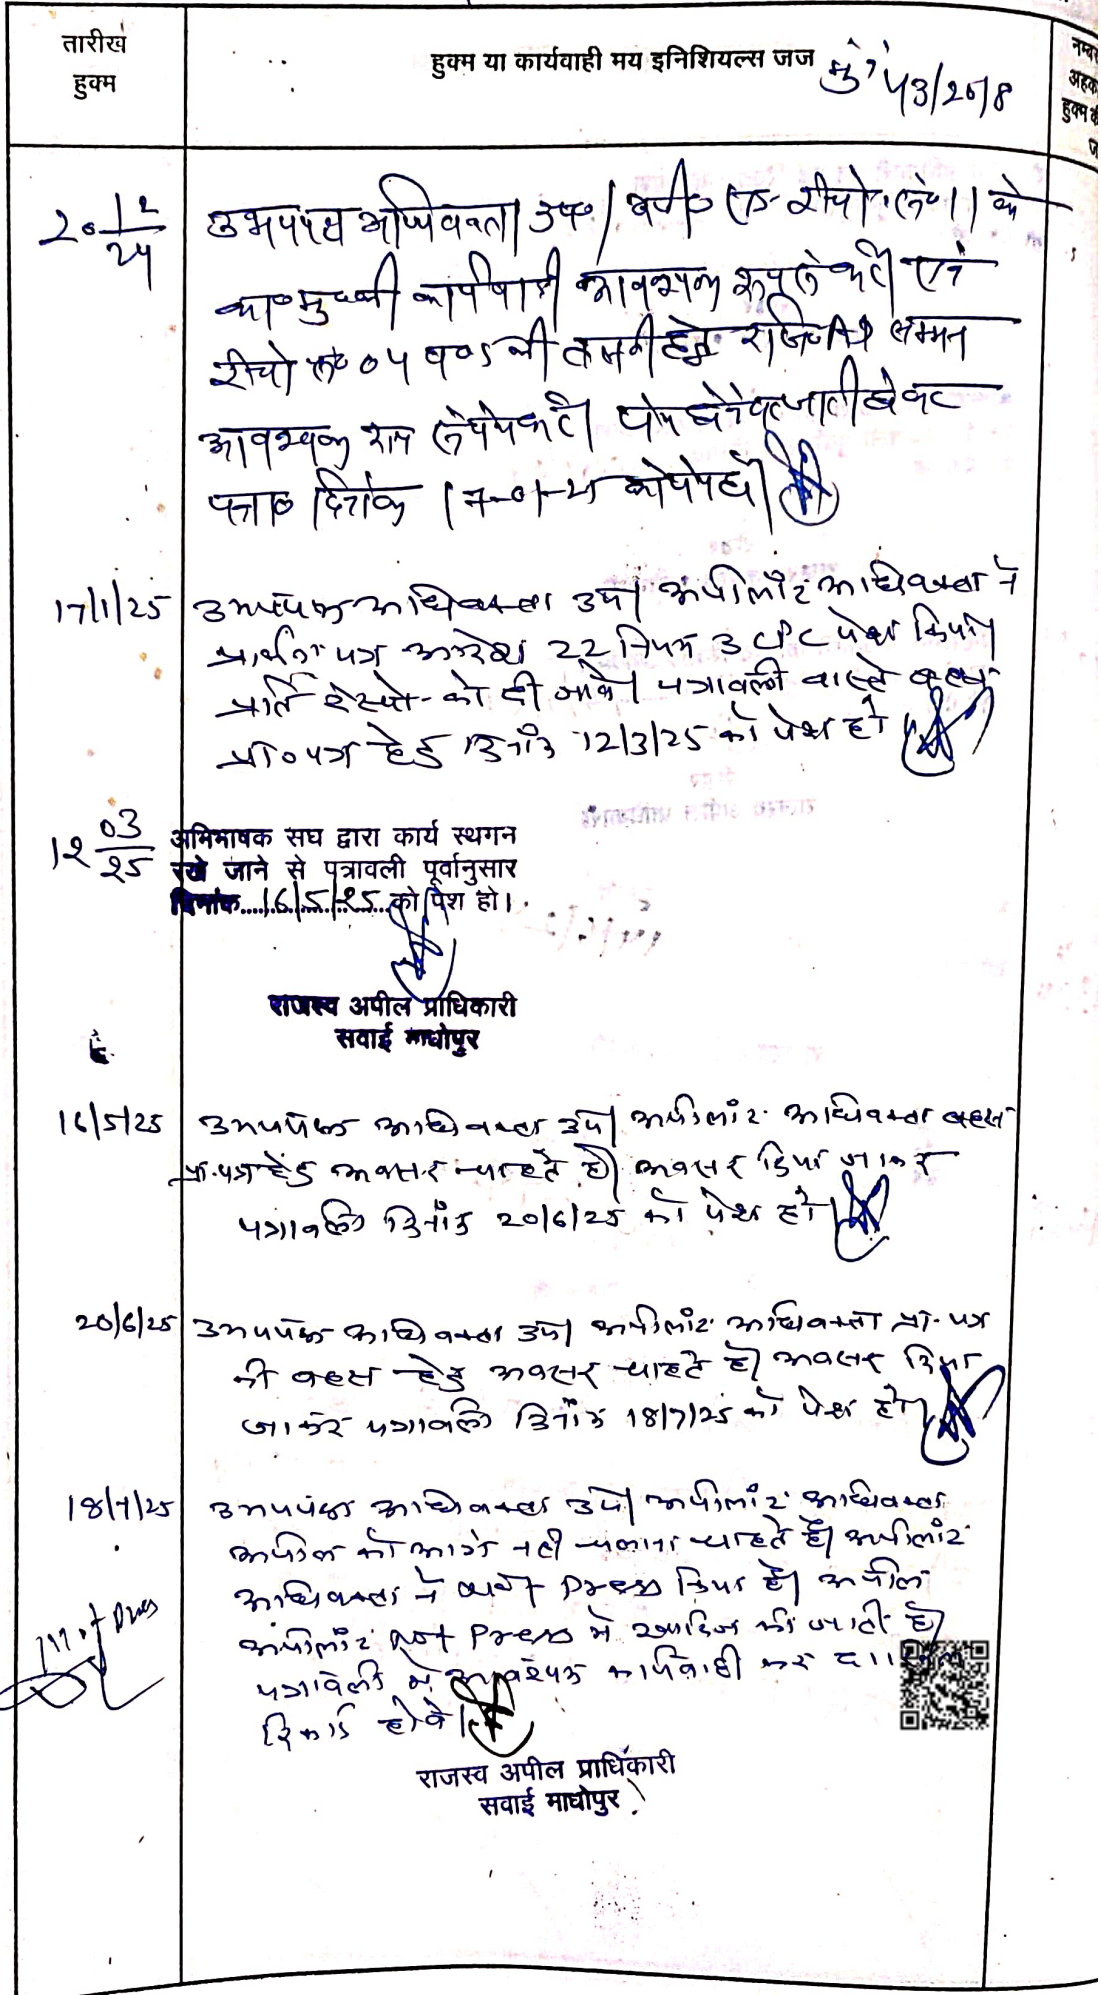 तारीख
हुक्म
हुक्म या कार्यवाही मय इनिशियल्स जज
मु० 43/2018
नम्बर
अहक
हुक्म
20 12/24
उभयपक्ष अधिवक्ता उप०। रेस्पो० सं० 1 के
का० मु० की कार्यवाही आवश्यक रूप से करें। एवं
रेस्पो सं० 04 व 05 की तलबी हेतु रजि० AD सम्मन
आवश्यक रूप से पेश करें।
पत्रा० दिनांक 17-01-25 को पेश हो।
17/1/25
उभयपक्ष अधिवक्ता उप। अपीलांट अधिवक्ता ने
प्रार्थना पत्र आदेश 22 नियम 3 CPC पेश किया।
प्रति रेस्पो. को दी जावे। पत्रावली वास्ते बहस
प्रा० पत्र हेतु दिनांक 12/3/25 को पेश हो।
12 03/25
अभिभाषक संघ द्वारा कार्य स्थगन
रखे जाने से पत्रावली पूर्वानुसार
दिनांक....16/5/25....को पेश हो।
राजस्व अपील प्राधिकारी
सवाई माधोपुर
16/5/25
उभयपक्ष अधिवक्ता उप। अपीलांट अधिवक्ता बहस
प्रा. पत्र हेतु अवसर चाहते है। अवसर दिया जाकर
पत्रावली दिनांक 20/6/25 को पेश हो।
20/6/25
उभयपक्ष अधिवक्ता उप। अपीलांट अधिवक्ता प्रा. पत्र
की बहस हेतु अवसर चाहते है। अवसर दिया
जाकर पत्रावली दिनांक 18/7/25 को पेश हो।
18/7/25
उभयपक्ष अधिवक्ता उप। अपीलांट अधिवक्ता
अपील को आगे नही चलाना चाहते है। अपीलांट
अधिवक्ता ने Press किया है। अपील
अपीलांट Not Press मे खारिज की जाती है।
पत्रावली मे आवश्यक कार्यवाही कर दाखिल
रिकार्ड होवे।
Not Press
राजस्व अपील प्राधिकारी
सवाई माधोपुर